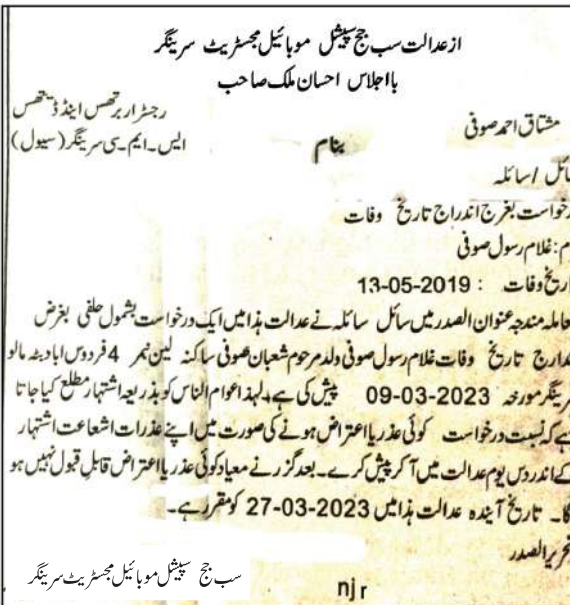 از عدالت سب جج سپیشل موبائیل مجسٹریٹ سرینگر
بااجلاس احسان ملک صاحب
مشتاق احمد صوفی
بنام
رجسٹرار برتھس اینڈ ڈیتھس
ایس۔ایم۔سی سرینگر (سیول)
ائل / سائلہ
رخواست بغرج اندراج تاریخ وفات
م: غلام رسول صوفی
اریخ وفات : 2019-05-13
عاملہ مندجہ عنوان الصدر میں سائل سائلہ نے عدالت ہذا میں ایک درخواست بشمول حلفی بغرض
دارج تاریخ وفات غلام رسول صوفی ولد مرحوم شعبان صوفی ساکنہ لین نمبر 4 فردوس اباد بٹہ مالو
رینگر مورخہ 2023-03-09 پیش کی ہے۔لہذا عوام الناس کو بذریعہ اشتہار مطلع کیا جاتا
ہے کہ نسبت درخواست کوئی عذر یا اعتراض ہونے کی صورت میں اپنے عذرات اشعاعت اشتہار
کے اندر دس یوم عدالت میں آکر پیش کرے۔ بعد گزرنے معیاد کوئی عذر یا اعتراض قابل قبول نہیں ہو
گا۔ تاریخ آیندہ عدالت ہذا میں 2023-03-27 کو مقرر ہے۔
تحریر الصدر
سب جج سپیشل موبائیل مجسٹریٹ سرینگر
njr